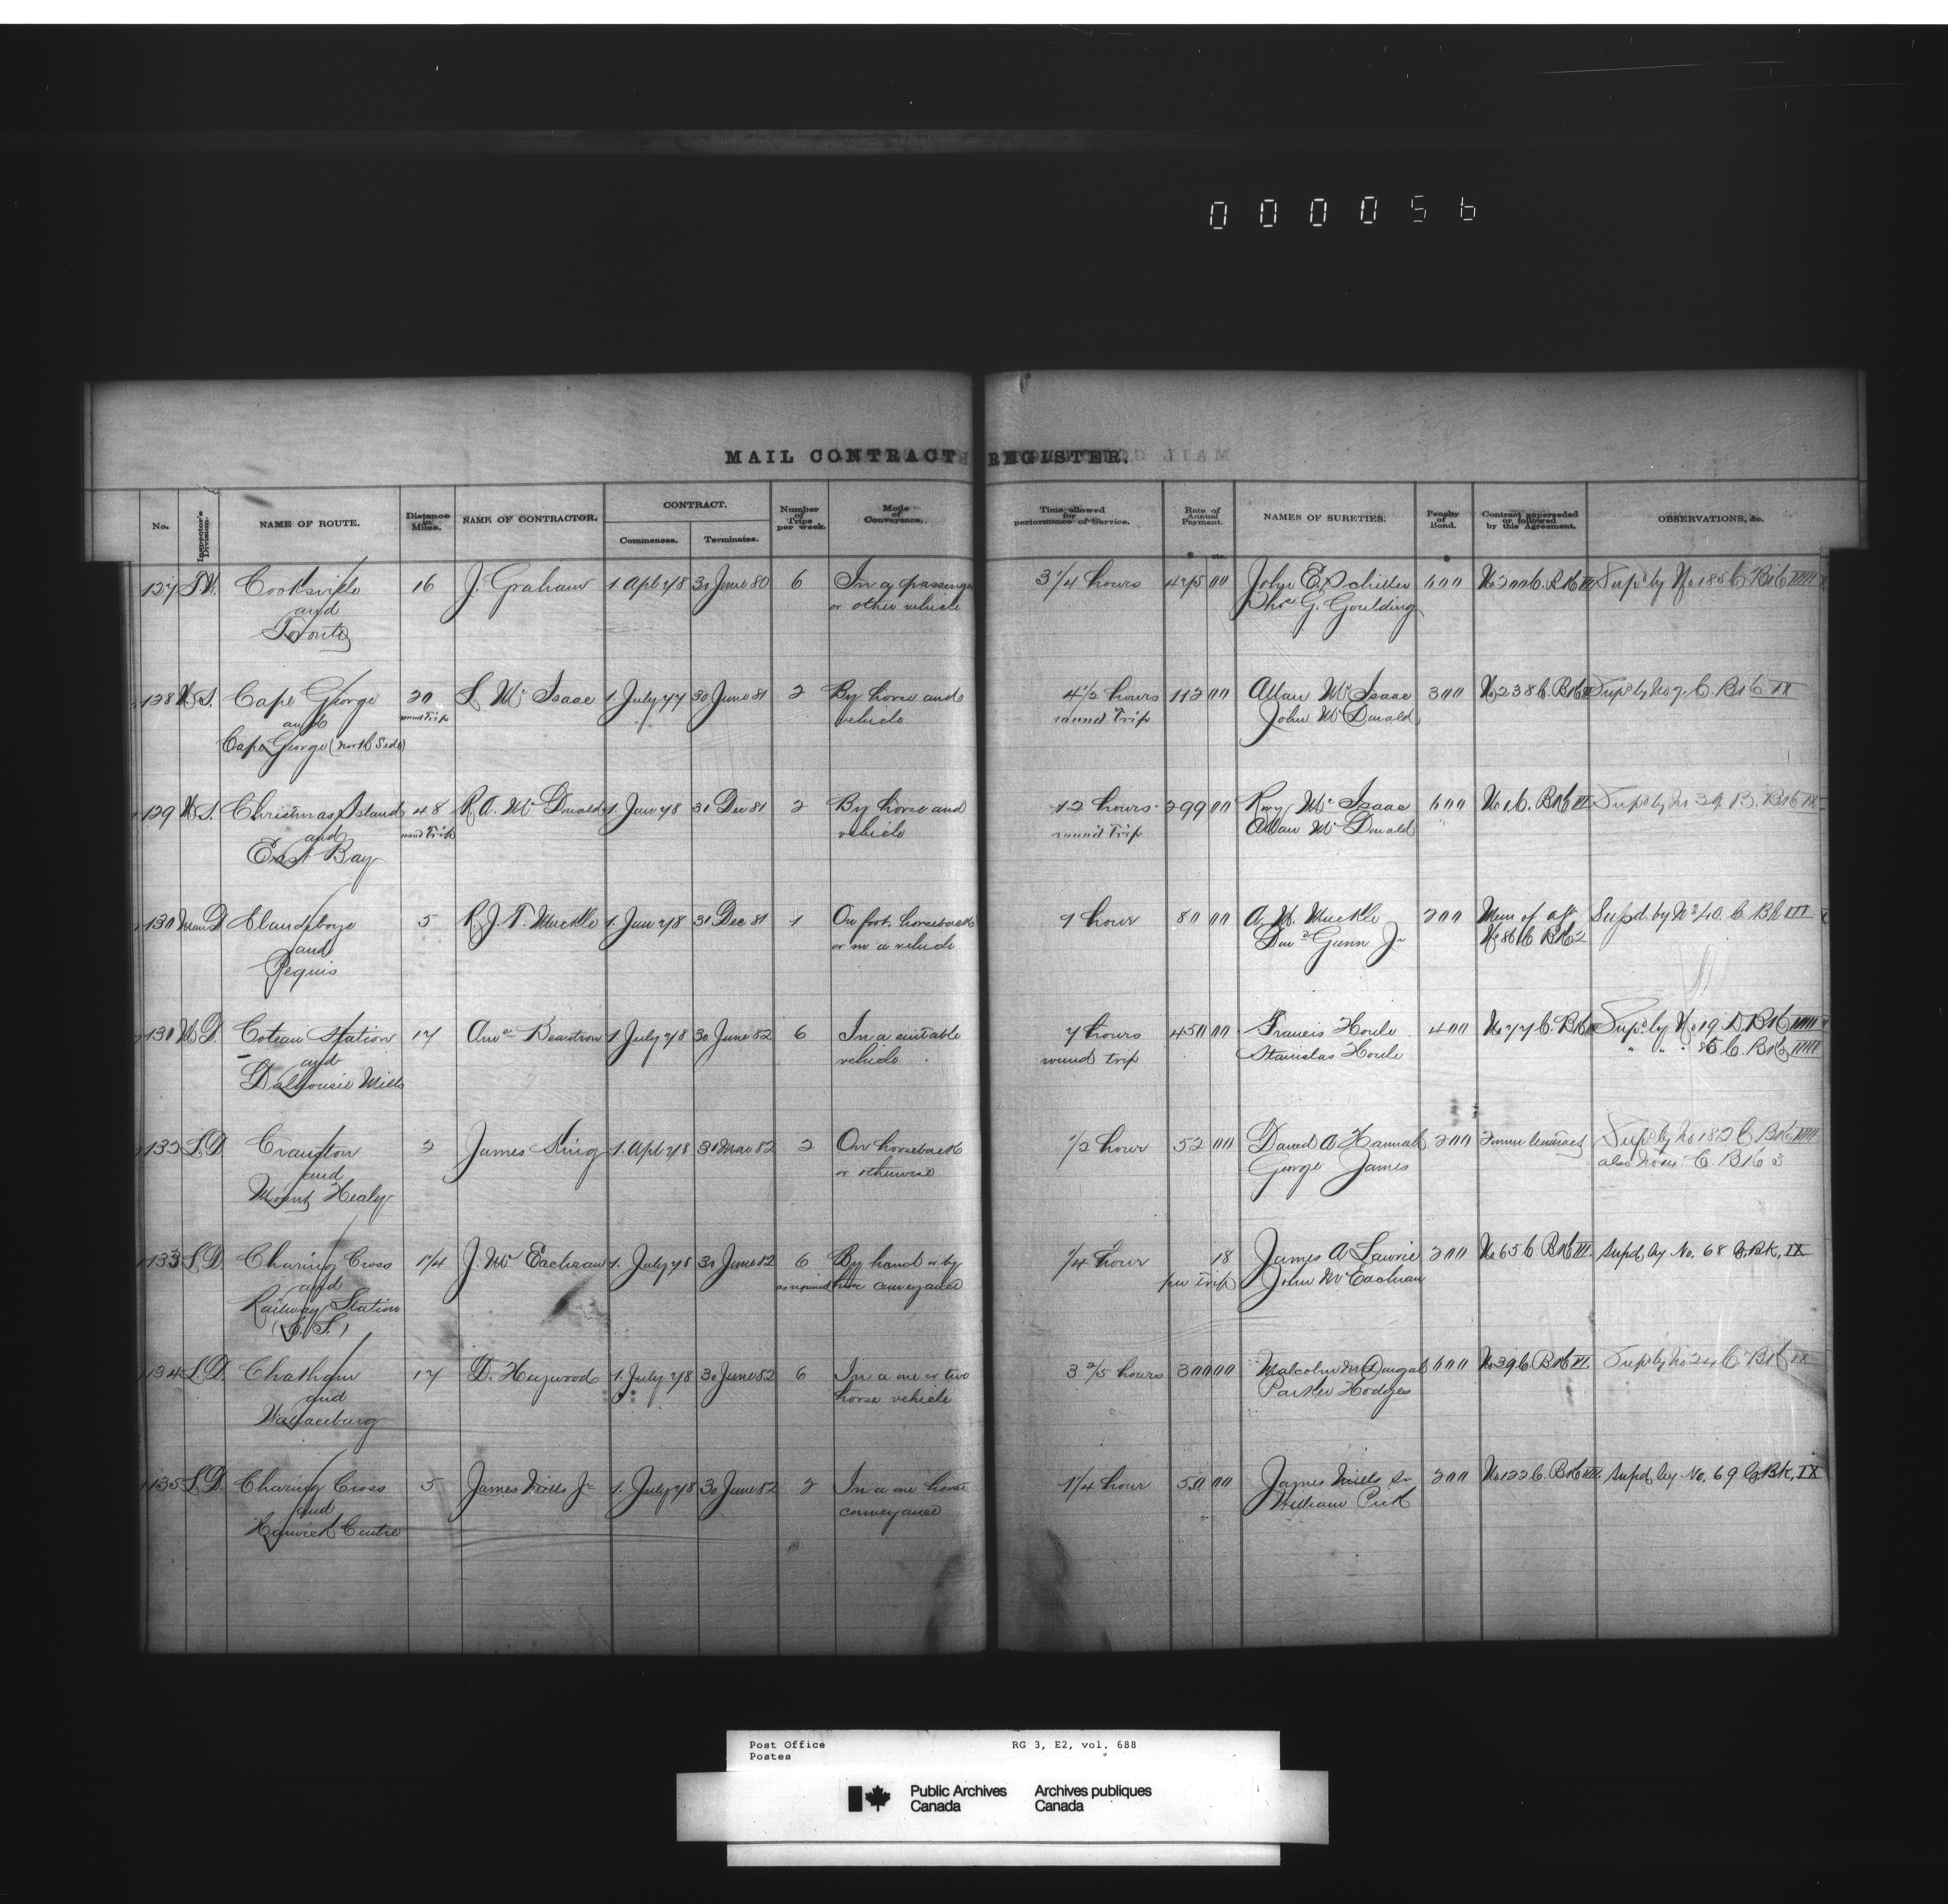 000056
MAIL CONTRACT REGISTER.
No.
Inspector's Division.
NAME OF ROUTE.
Distance in Miles.
NAME OF CONTRACTOR.
CONTRACT.
Commences.
Terminates.
Number of Trips per week.
Mode of Conveyance.
Time allowed for performance of Service.
Rate of Annual Payment.
$ cts.
NAMES OF SURETIES.
Penalty of Bond.
$
Contract superseded or followed by this Agreement.
OBSERVATIONS, &c.
127 Cooksville 16 J. Graham 1. Apl 78 30 June 80 6 In a passenger 3 1/4 hours 475 00 John E. Schiller 600 No 200 C. Bk
and or other vehicle Thos G. Goulding
Toronto
128 N.S. Cape George 20 L Mc Isaac 1. July 77 30 June 81 2 By horse and 4 1/2 hours 112 00 Allan Mc Isaac 300 No 238 C. Bk Supd by No 7. C. Bk IX
and round Trip vehicle round Trip John Mc Donald
Cape George (North Side)
129 N.S. Christmas Island 48 R. A. Mc Donald 1. Jan 78 31 Dec 81 2 By horse and 12 hours 299 00 Rory Mc Isaac 600 No 1 C. Bk Supd by No 39. B. Bk IX
and round Trip vehicle round Trip Allan Mc Donald
East Bay
130 Man D Clandeboye 5 R. J. T. Muckle 1. Jan 78 31 Dec 81 1 On foot, horseback 1 hour 80 00 A. W. Muckle 200 Mem of agt Supd. by No 40. C. Bk III
and or in a vehicle Gunn Jr No 86 C Bk 2
Peguis
131 Coteau Station 17 1 July 78 30 June 82 6 In a suitable 7 hours 450 00 Francis Houle 400 No 77 C. Bk Supd by No 19 D. Bk
and vehicle round trip Stanislas Houle " " " 85 C. Bk
Dalhousie Mills
132 Cranston 2 James King 1. Apl 78 31 Mar 82 2 On horseback 1/2 hour 52 00 David A. Hannah 200 Former Contract Supd by No 182 C Bk
and or otherwise George James also C. Bk 3
Mount Healy
133 L.D. Charing Cross 1/4 J. Mc Eachran 1. July 78 30 June 82 6 By hand or by 1/4 hour 18 James A Lawrie 200 No 65 C Bk III. Supd by No. 68 C. Bk. IX
and as required horse conveyance per trip John McEachran
Railway Station
(C. S.)
134 L.D. Chatham 17 D. Heywood 1. July 78 30 June 82 6 In a one or two 3 2/5 hours 300 00 Malcolm McDougal 600 No 39 C. Bk VI. Supd by No 24 C. Bk IX
and horse vehicle Parker Hodges
Wallaceburg
135 L.D. Charing Cross 5 James Mills Jr 1. July 78 30 June 82 2 In a one horse 1 1/4 hour 50 00 James Mills Sr 200 No 122 C. Bk Supd by No. 69 C. Bk. IX
and conveyance William Pick
Harwich Centre
Post Office RG 3, E2, vol. 688
Postes
Public Archives Archives publiques
Canada Canada